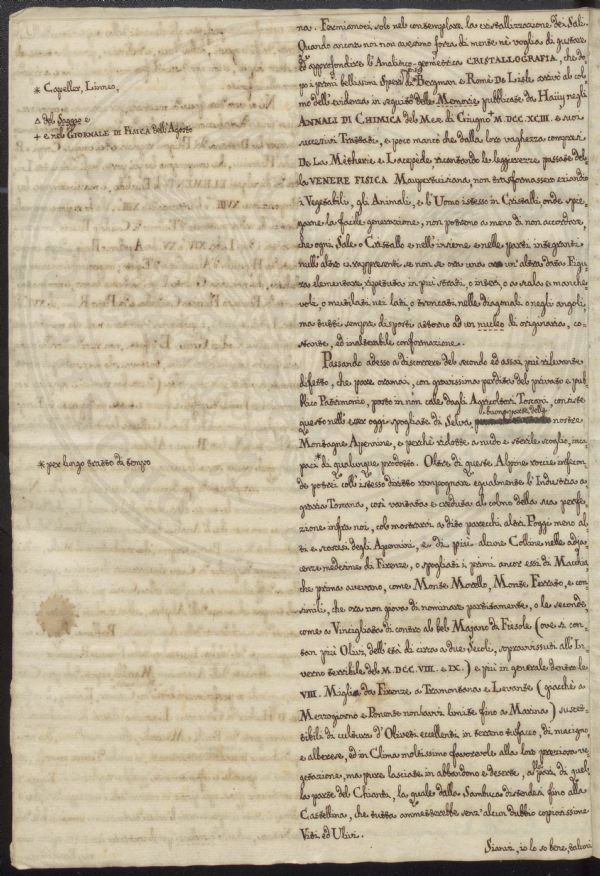 na. Fermiamoci solo nel contemplare la cristallizzazione dei Sali.
Quando ancora noi non avessimo forza di mente nè voglia di gustare
ed approfondire l'Analitico-geometrica CRISTALLOGRAFIA, che do-
po i primi bellissimi di Bergman e Romè De Lisle arrivò al col-
mo dell'evidenza in seguito delle Memorie pubblicate da Haüy negli
ANNALI DI CHIMICA del Mese di Giugno M.DCC.XCIII. e suoi
successivi Trattati, e poco mancò che dalla loro vaghezza compresi
De La Metherie e Lacepède ricontando le leggerezze passate del-
la VENERE FISICA Maupertuisiana, non trasformassero eziandio
i Vegetabili, gli Animali, e l'Uomo istesso in Cristalli, onde spie-
garne la facile generazione, non potremo a meno di non accordare,
che ogni Sale o Cristallo e nell'insieme e nelle parti integranti
null'altro ci rappresenti se non se ora una ora un'altra data Figu-
ra elementare, ripetuta in più strati, o interi, o a scala e manche-
vole, o mutilati nei lati, o troncati nelle diagonali o negli angoli,
ma tutti sempre disposti attorno ad un nucleo di originaria, co-
stante, ed inalterabile conformazione.
Passando adesso a discorrere del secondo ed assai più rilevante
difetto, che pare oramai, con gravissima perdita del privato e pub-
blico Patrimonio, posto in non cale dagli Agricoltori Toscani, consiste
questo nell'esser oggi spogliate di Selva buona parte delle nostre
Montagne Apennine, e perchè ridotte a nudo e sterile scoglio, inca-
paci * di qualunque prodotto. Oltre di queste Alpine rocce infecon-
de potrei coll'istesso diritto rampognare egualmente l'Industria a-
graria Toscana, così vantata e creduta al colmo della sua perfe-
zione infra noi, col mostrarvi a dito parecchi altri Poggi meno al-
ti e scoscesi degli Apennini, e di più alcune Colline nelle adja-
cenze medesime di Firenze, o spogliati i primi ancor essi di Macchia,
che prima avevano, come Monte Morello, Monte Ferrato, e con-
simili, che ora non giova di nominare partitamente, o le seconde,
come a Vincigliata di contro al bel Majano di Fiesole (ove si con-
tan più Olivi dell'età di circa a due Secoli, sopravvissuti all'In-
verno terribile del M.DCC.VIII. e IX.) e più in generale dentro le
VIII. Miglia da Firenze a Tramontana e Levante (giacchè a
Mezzogiorno e Ponente non havvi limite fino a Marina) suscet-
tibili di cultura d'Oliveti eccellenti in terreno tufaceo, di macigno,
e alberese, ed in Clima moltissimo favorevole alla loro preziosa ve-
getazione, ma pure lasciate in abbandono e deserte, al pari di quel-
la parte del Chianti, la quale dalla Sambuca distendesi fino alla
Castellina, che tutta ammetterebbe senz'alcun dubbio copiosissime
Viti ed Ulivi.
Sianvi, io lo so bene, taluni
* Capeller, Linneo,
Δ del Saggio e
+ e nel GIORNALE DI FISICA dell'Agosto
* per lungo tratto di tempo